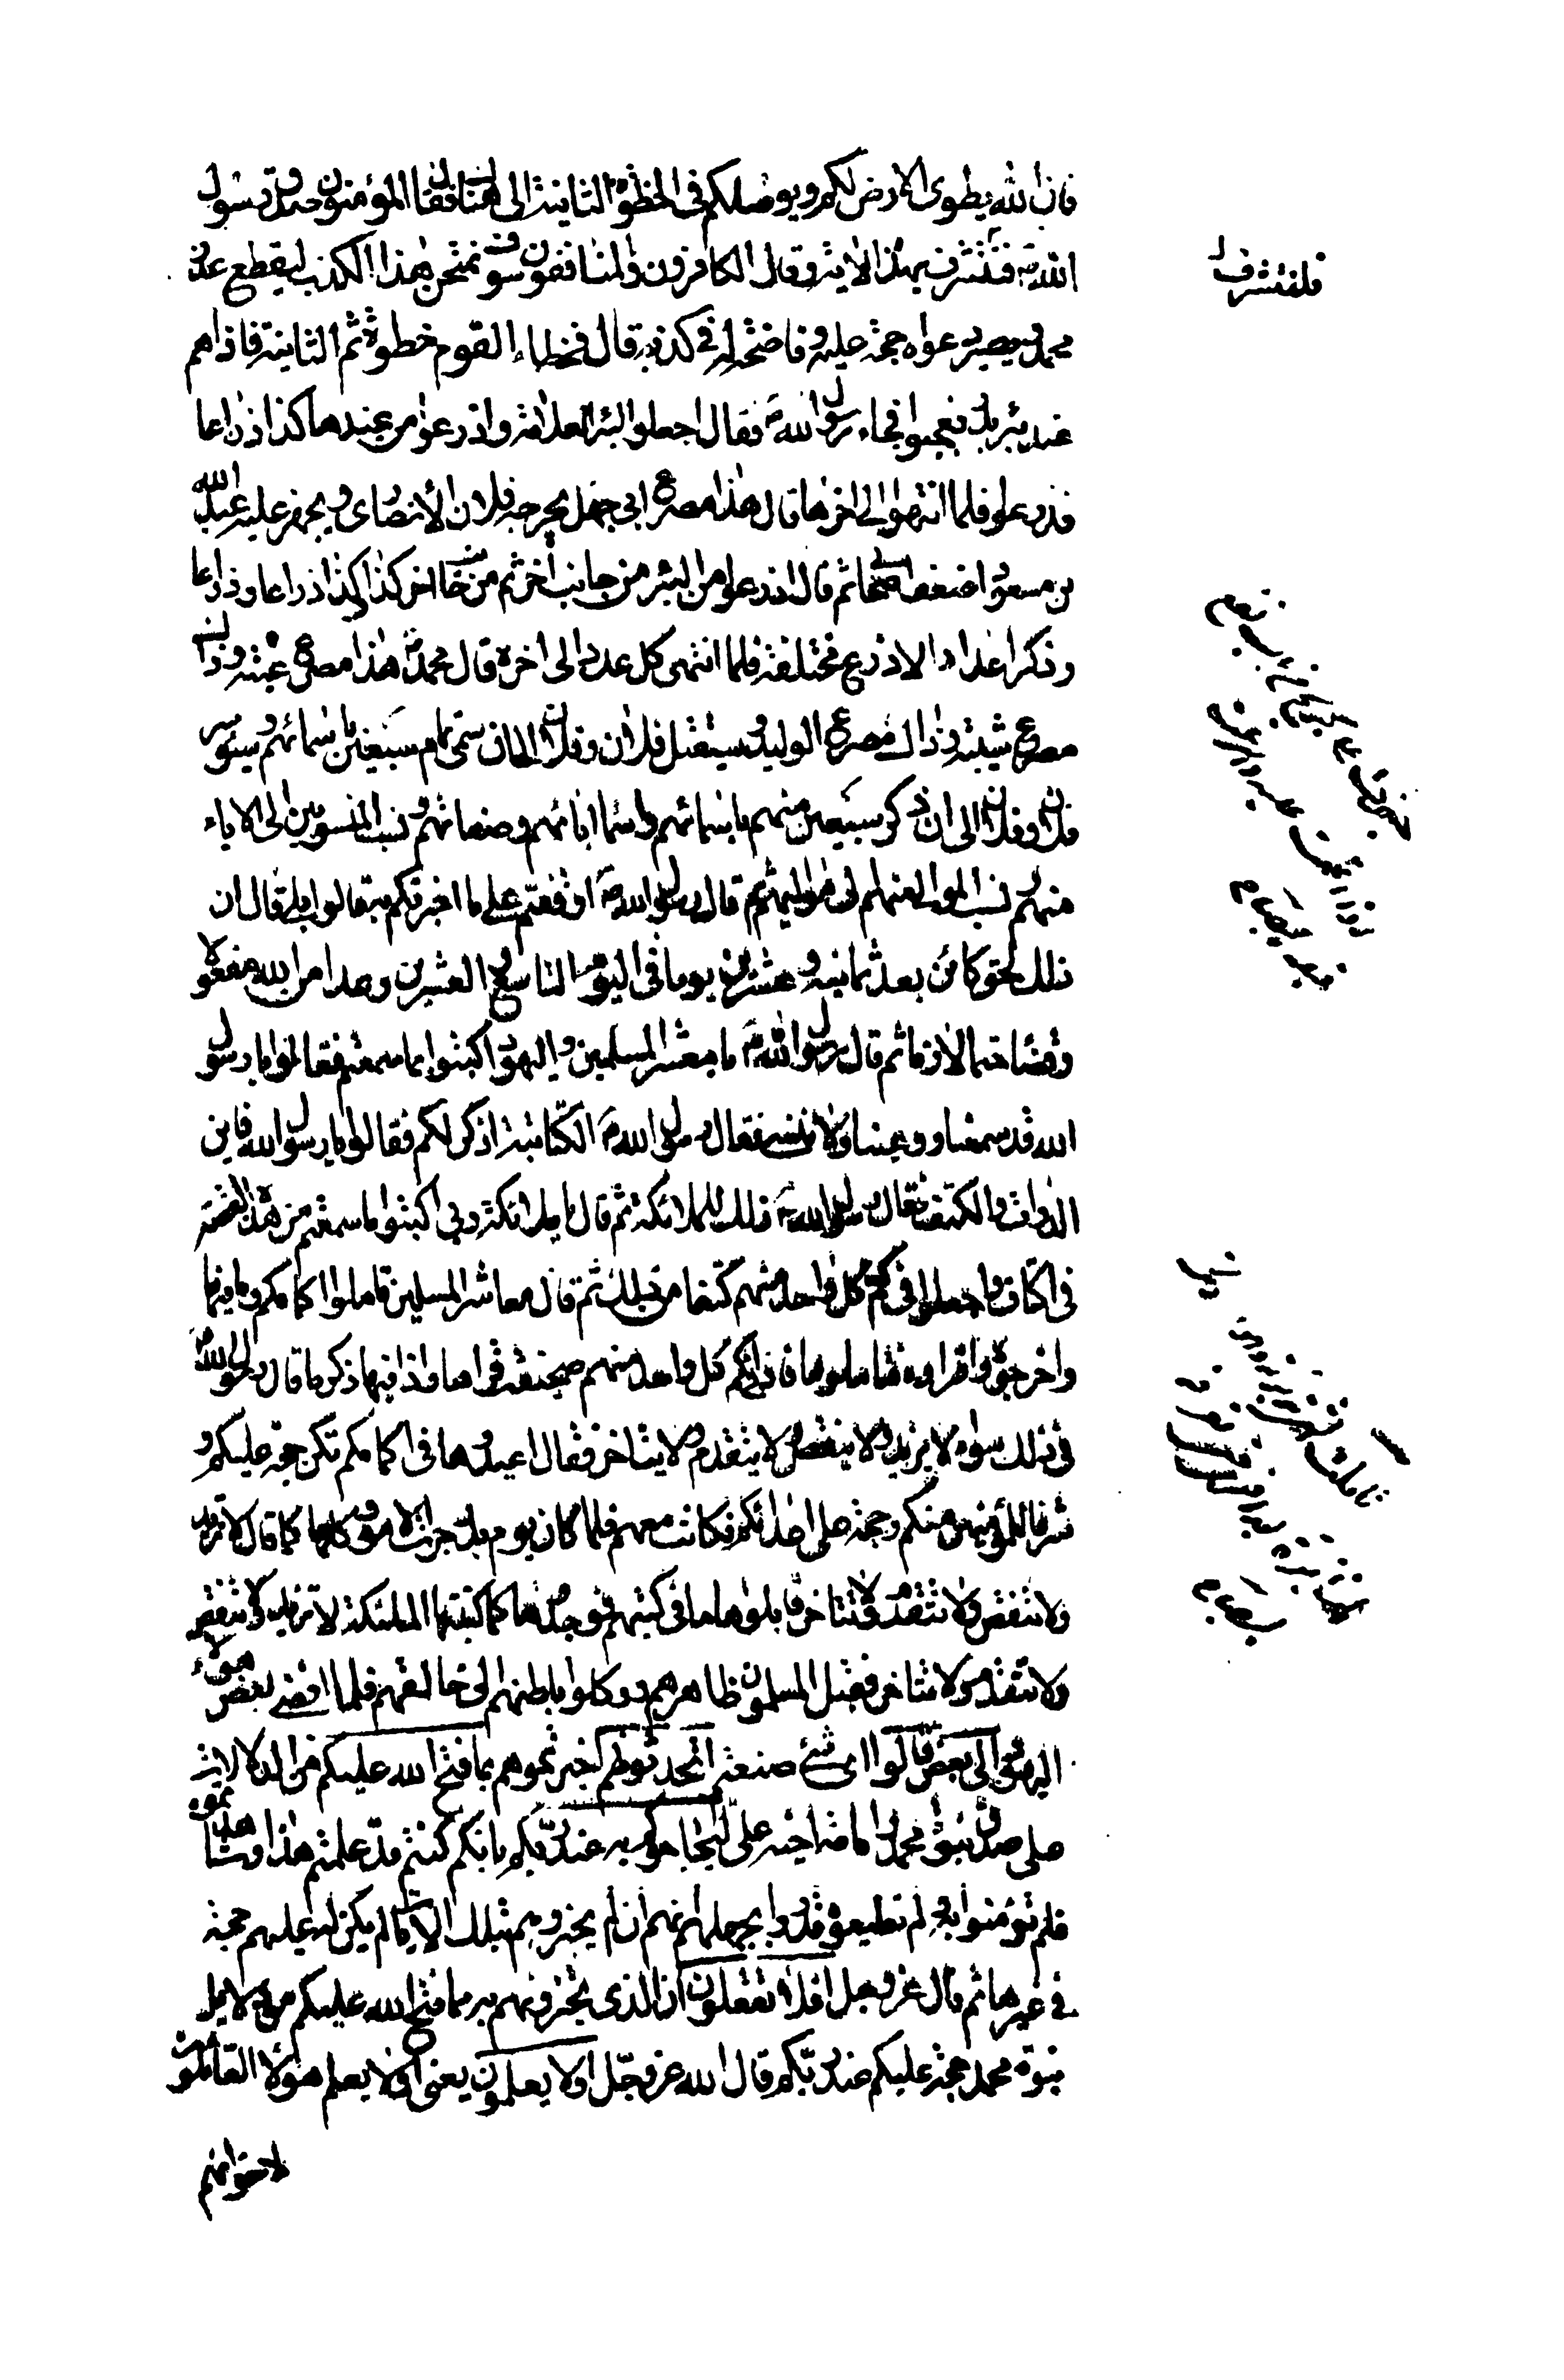 فان الله يطوى الارض لكم ويوصلكم فى الخطوة الثانية الى هناك فقال المؤمنون صدق رسول
الله ص فلنتشرف بهذه الاية وقال الكافرون والمنافقون سوف نمتحن هذا الكذب ليقطع عذر
محمد ويصير دعواه حجة عليه وفاضحة له فى كذبه قال فخطاء القوم خطوة ثم الثانية فاذا هم
عند بئر بدر فعجبوا فجاء رسول الله ص فقال اجعلوا البئر العلامة واذرعوا من عندها كذا ذراعا
فذرعوا فلما انتهوا الى اخرها قال هذا مصرع ابى جهل يجرحه فلان الأنصارى ويجهز عليه عبد الله
بن مسعود اضعف اصحابى ثم قال اذرعوا من البئر من جانب اخر ثم من جانب اخر كذا وكذا ذراعا وذراعا
وذكر اعداد الاذرع مختلفة فلما انتهى كل عدد الى اخره قال محمد ص هذا مصرع عتبة وذاك
مصرع شيبة وذاك مصرع الوليد وسيقتل فلان وفلان الى ان سمى تمام سبعين باسمائهم وسيؤسر
فلان وفلان الى ان ذكر سبعين منهم باسمائهم واسماء ابائهم وصفاتهم ونسب المنسوبين الى الاباء
منهم ونسب الموالى منهم الى مواليهم ثم قال رسول الله ص اوقفتم على ما اخبرتكم به قالوا بلى قال ان
ذلك لحق كائن بعد ثمانية وعشرين يوما فى اليوم التاسع والعشرين وعدا من الله مفعولا
وقضاء حتما لازما ثم قال رسول الله ص يا معشر المسلمين واليهود اكتبوا بما سمعتم فقالوا يا رسول
الله قد سمعنا ووعينا ولا ننسى فقال رسول الله ص الكتابة اذكر لكم فقالوا يا رسول الله فاين
الدواة والكتف فقال رسول الله ص ذلك للملائكة ثم قال يا ملائكة ربى اكتبوا ما سمعتم من هذه القصة
فى اكتاف واجعلوا فى كم كل واحد منهم كتفا من ذلك ثم قال معاشر المسلمين تاملوا اكمامكم وما فيها
واخرجوه واقراوه فتاملوها فاذا فى كم كل واحد منهم صحيفة قراها واذا فيها ذكر ما قال رسول الله ص
فى ذلك سواء لا يزيد ولا ينقص ولا يتقدم ولا يتاخر فقال اعيدوها فى اكمامكم تكن حجة عليكم و
شرفا للمؤمنين منكم وحجة على اعدائكم فكانت معهم فلما كان يوم بدر جرت الامور كلها كما قال لا تزيد
ولا تنقص ولا تتقدم ولا تتاخر قابلوها ما فى كتبهم فوجدوها كما كتبتها الملئكة لا تزيد ولا تنقص
ولا تتقدم ولا تتاخر فقبل المسلمون ظاهرهم ووكلوا باطنهم الى خالقهم فلما افضى بعض هؤلاء
اليهود الى بعض قالوا اى شئ صنعتم اتحدثونهم اخبرتموهم بما فتح الله عليكم من الدلالات
على صدق نبوة محمد وامامة اخيه على ليحاجوكم به عند ربكم بانكم كنتم قد علمتم هذا وشاهدتموه
فلم تؤمنوا به ولم تطيعوه وقدروا بجهلهم انهم ان لم يخبروهم بتلك الايات لم يكن له عليهم حجة
فى غيرها ثم قال عز وجل افلا تعقلون ان الذى تخبرونهم به مما فتح الله عليكم من دلايل
نبوة محمد حجة عليكم عند ربكم قال الله عز وجل اولا يعلمون يعنى اولا يعلم هؤلاء القائلون
لاخوانهم
فلنتشرف